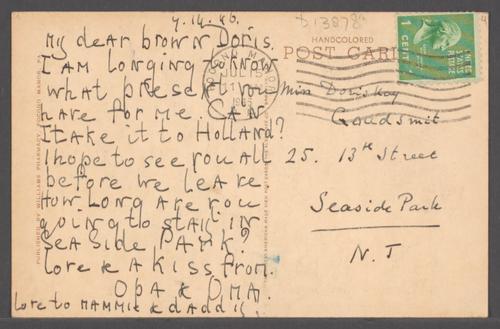 My dear brown Doris.
I AM longing to know
what present you
have for me. CAN
I take it to HOLLAND?
I hope to see you all
before we leave
How Long are you
going to stay in
SEASIDE PARK?
love & A KISS from.
OPA & OMA.
Love to MAMMIE & dAddy.
D13878
HANDCOLORED
POST CARD
1 CENT
Miss Doris
Goudsmit
25. 13th Street
Seaside Park
N. J
PUBLISHED BY WILLIAMS PHARMACY, POCONO MANOR, PA.